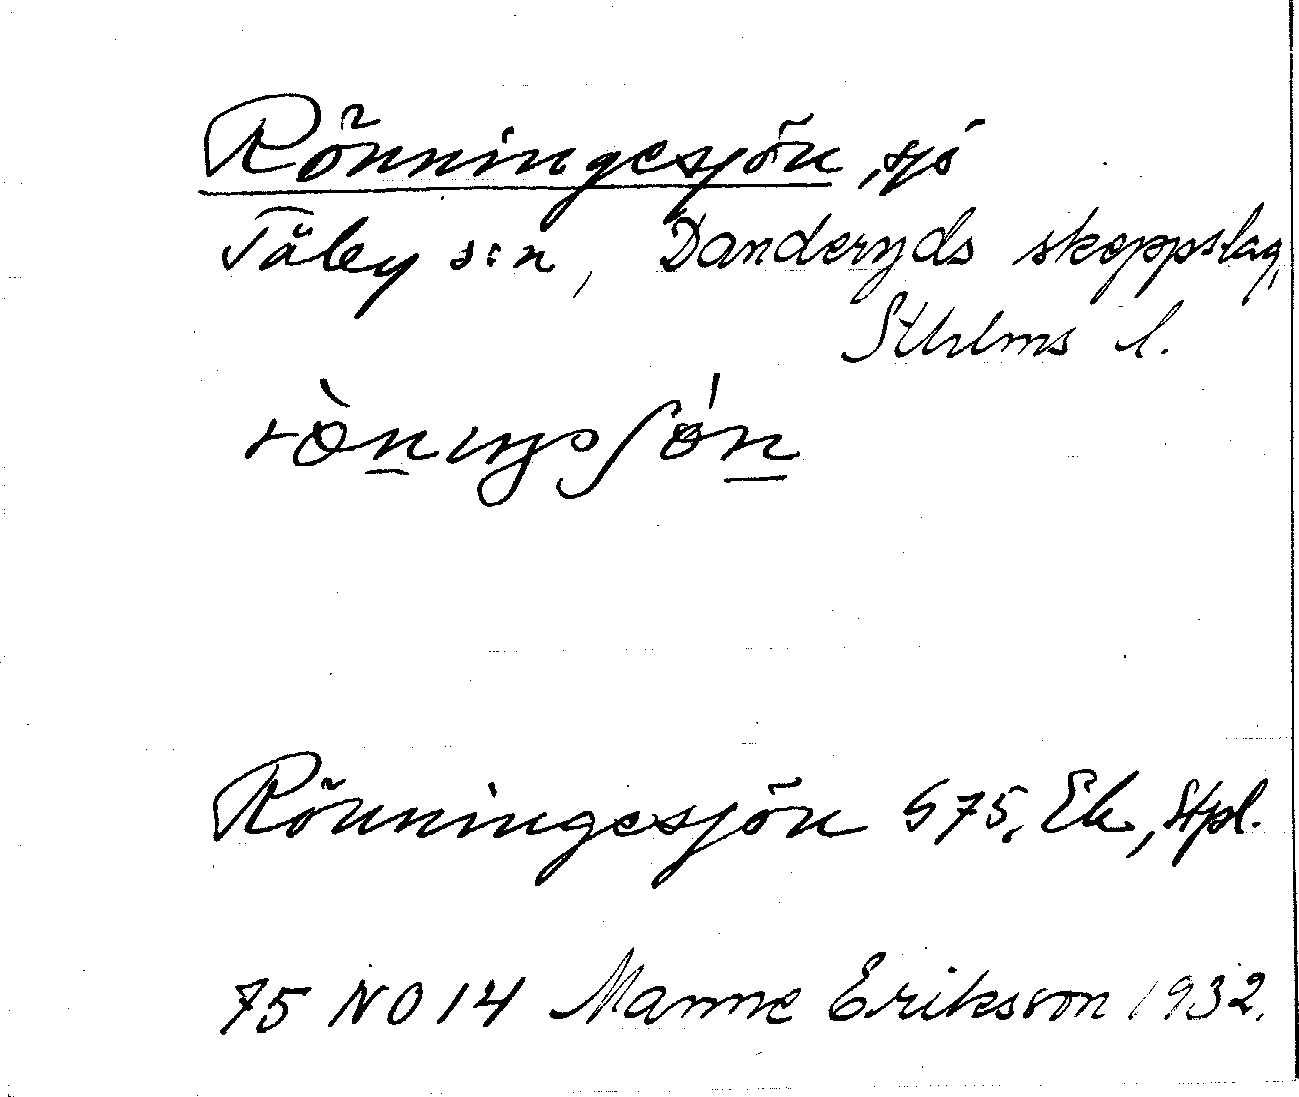 Rönningesjön, sjö
Täby s:n, Danderyds skeppslag,
Sthlms l.
Rönningesjön G75, Ek, Stpl.
75 NO 14 Manne Eriksson 1932.